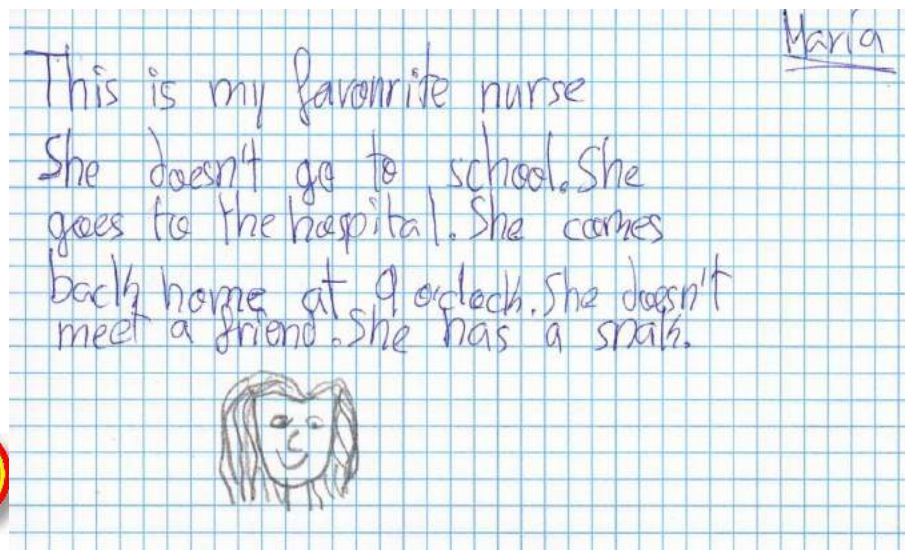 María
This is my favourite nurse
She doesn't go to school. She
goes to the hospital. She comes
back home at 9 o'clock. She doesn't
meet a friend. She has a snak.